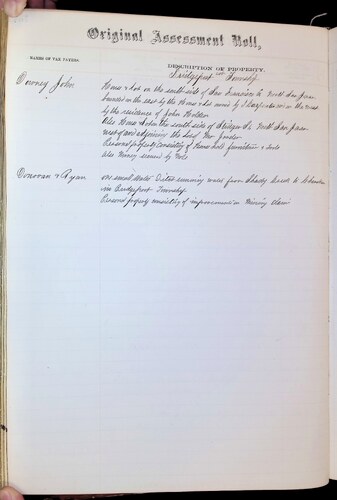 Original Assessment Roll,
NAMES OF TAX PAYERS.
DESCRIPTION OF PROPERTY.
Bridgeport Township
Downey John
House & Lot on the south side of San Francisco St North San Juan
bounded on the east by the House & Lot owned by & on the West
by the residence of John
Also House & Lot on the south side of St North San Juan
west of and adjoining the
Personal property consisting of House hold furniture & tools
also Money secured by Note
Donovan & Ryan
one small Water Ditch running water from Shady Creek to
in Bridgeport Township
Personal property consisting of improvements on Mining Claim